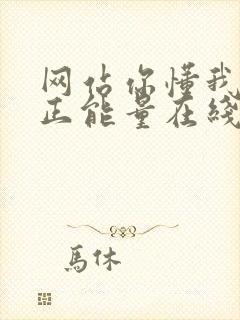 网站你懂我
正能量在线
馬休